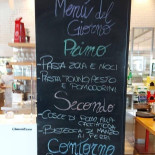 Menù del
Giorno
Primo
- Pasta zola e noci
- Pasta tonno pesto
e pomodorini
Secondo
- Cosce di pollo alla
cacciatora
- Bistecca di manzo
ai ferri
Contorno